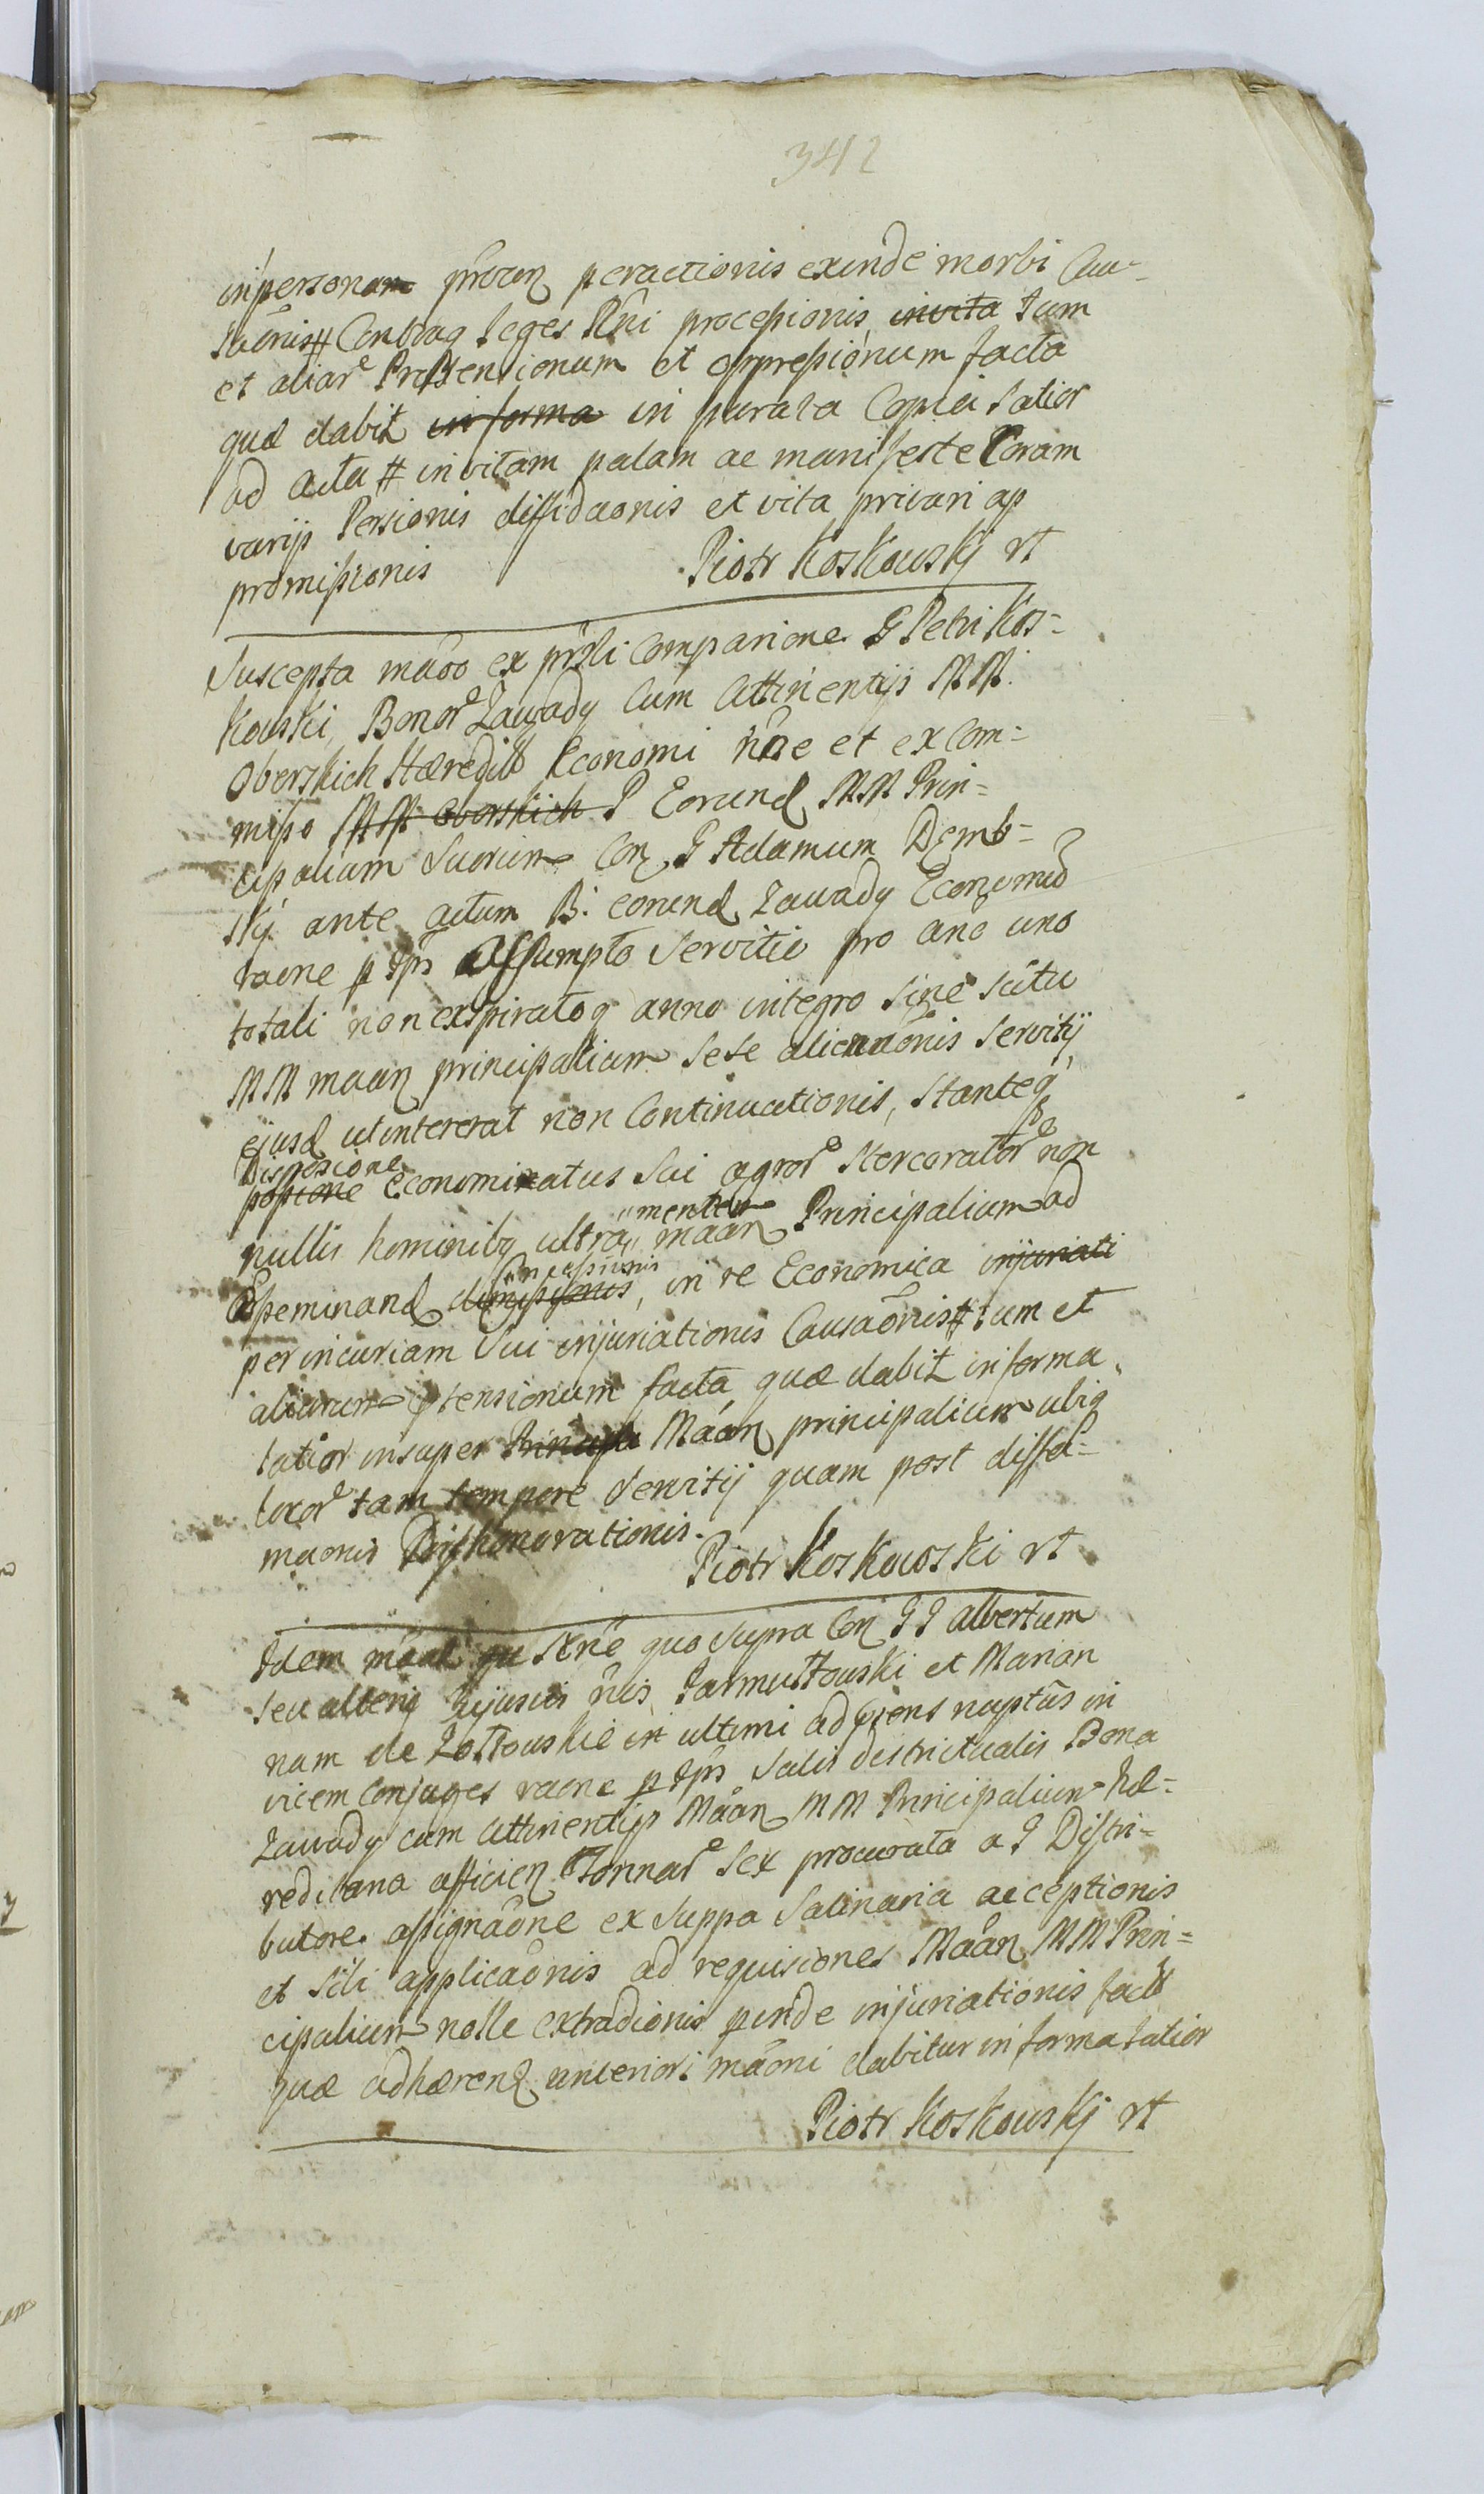 342
in personam pñtem peractionis exinde morbi Cau-
saõnis # Contraq leges Rñi processionis invita tum
et aliar Praetensionum et oppressionum facta
quæ dabit in forma in parata Copia latior
ad acta # in vitam palam ac manifeste Coram
varijs Personis diffidaonis et vita privari ap
promissionis
Piotr Koskowskj rt
Suscepta mãõo ex pñli Comparione G Petri Kos-
kowski, Bonor Zawady Cum Attinentijs MM.
Oberskich Hæredit Economi nõe et ex Com-
misso MM Oberskich P Eorund MM Prin-
cipalium Suorum Con G Adamum Demb-
skj ante actum B. eorund Zawady Economũ
raone p Ips Assumpto Servitio pro ano uno
totali non expiratoq anno integro sine scitu
MM maan principalium sese alienaõnis Servitij
ejusd ut intererat non Continuationis, Stanteq
Dispõsione
possione Economicatus sui agror stercorator non
nullis hominibq ultra mentem maan Principalium ad
Concessionis
Speminand dimissionis, in re Economica injuriati
per incuriam sui injuriationis Causaõnis # tum et
aliarum ptensionum facta quæ dabit in forma
latior insuper Principa Maan principalium ubiq
locor tam tempore Servitij quam post diffa-
maonis Dishonorationis.
Piotr Koskowski rt
Idem mãñs qu stñe quo supra Con G G Albertum
seu alterig cujusvis nõis Jarmułtowski et Marian
nam de Zołtowskie in ultimi ad psens nuptũs in
vicem Conjuges raone p Ips Salis districtualis Bona
Zawady cum attinentijs Maan MM Principalium hæ-
reditana afficien Tonnar Sex procurata a G Distri-
butore assignaõne ex Suppa Salinaria acceptionis
et sibi applicaõnis ad requisiones Maan MM Prin-
cipalium nolle extradionis pinde injuriationis fact
quæ adhærend anteriori maoni dabitur in forma latior
Piotr Koskowskj rt